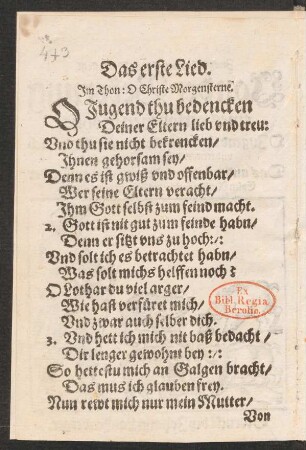 443
Das erste Lied.
Im Thon: O Christe Morgensterne.
O Jugend thu bedencken
Deiner Eltern lieb vnd treu:
Vnd thu sie nicht bekrencken/
Ihnen gehorsam sey/
Denn es ist gwiß vnd offenbar/
Wer seine Eltern veracht/
Ihm Gott selbst zum feind macht.
2. Gott ist nit gut zum feinde habn/
Denn er sitzt vns zu hoch:/:
Vnd solt ich es betrachtet habn/
Was solt michs helffen noch?
O Lothar du viel arger/
Wie hast verfüret mich/
Vnd zwar auch selber dich.
3. Vnd hett ich mich nit baß bedacht/
Dir lenger gewohnt bey:/:
So hettestu mich an Galgen bracht/
Das mus ich glauben frey.
Nun rewt mich nur mein Mutter/
Von
Ex
Bibl. Regia
Berolin.